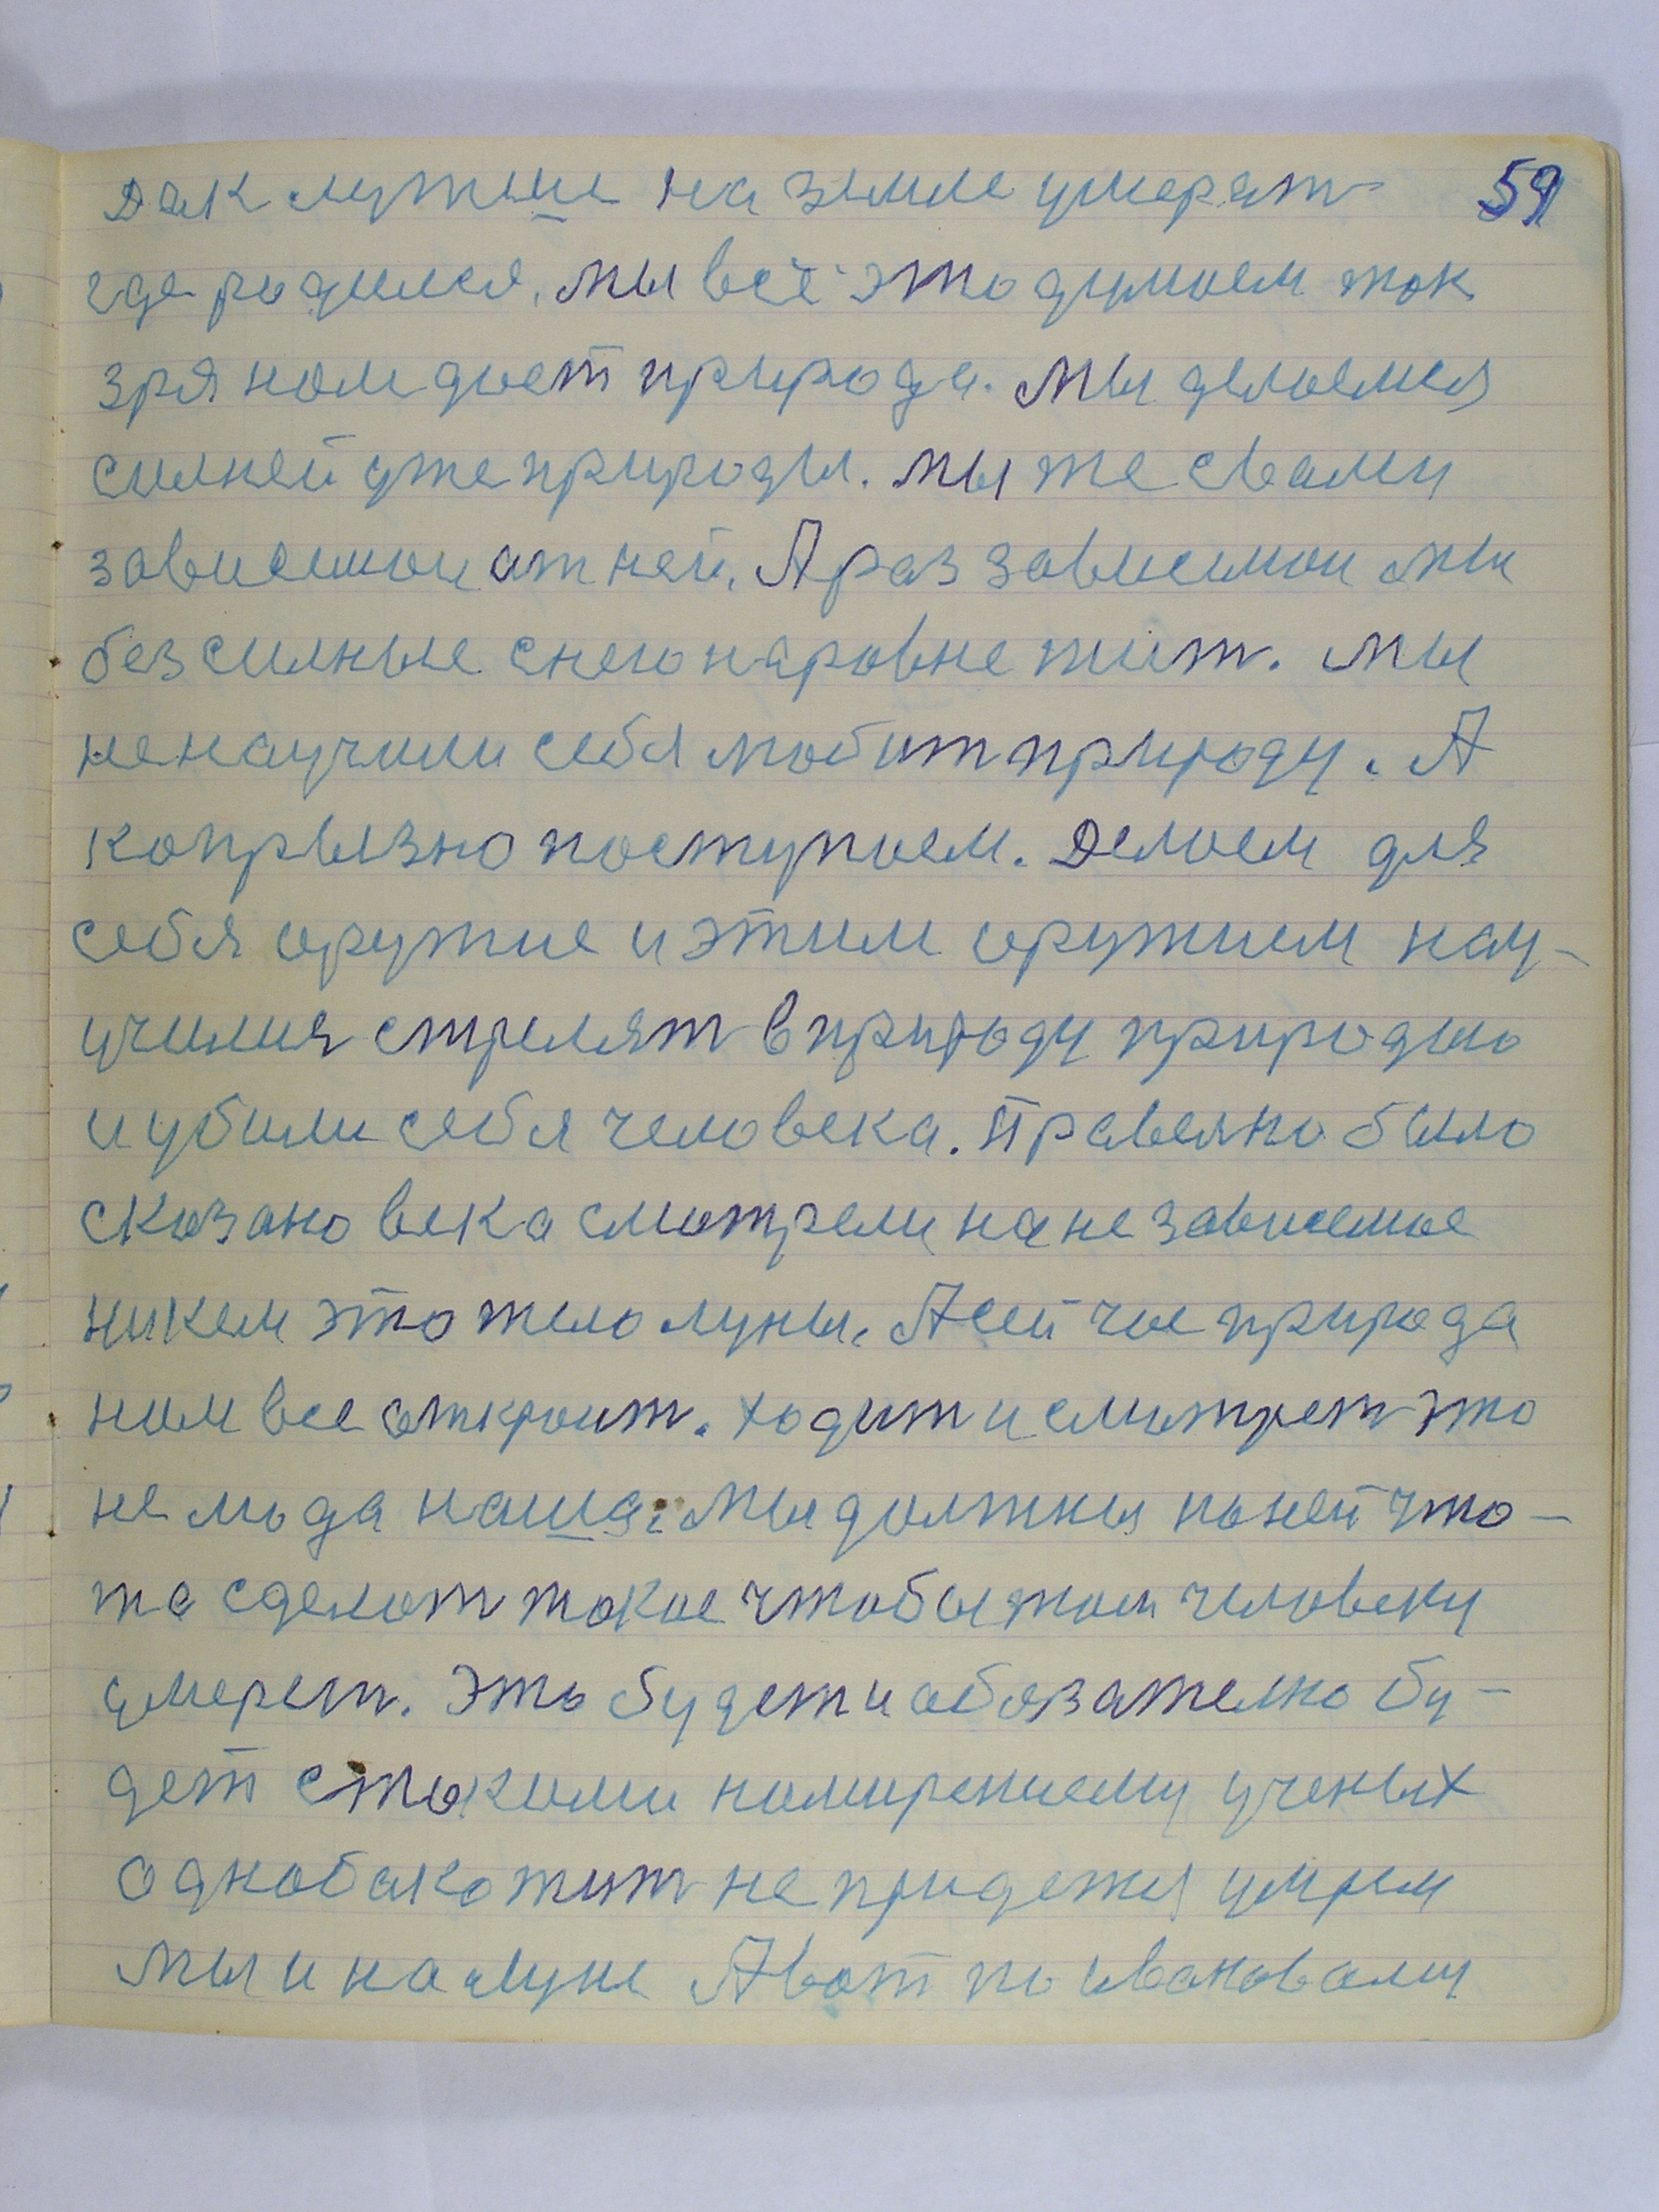 59
Дак лутше на земле умерат
где родился, мы всё это думаем так
зря нам дает природа. Мы делаемся
силней уже природы. мы же сьвами
зависемаи ат ней, А раз зависемаи мы
без силные снею наровне жит. мы
не научили себя любит природу. А
капрызно поступаем. Делаем для
себя оружие и этим оружием нау-
училися стрелят в природу природою
и убили себя человека. Правелно было
сказано века смотрели на не зависемае
никем это тело луны. А сейчас природа
нам все откроит. ходит и смотрет это
не мода наша: Мы должны по ней что-
то сделат такое чтобы там человеку
умерет. Это будет и обязателно бу-
дет стакими намирениеми ученых
однобако жит не придется умрем
мы и на луне А вот по ивановаму